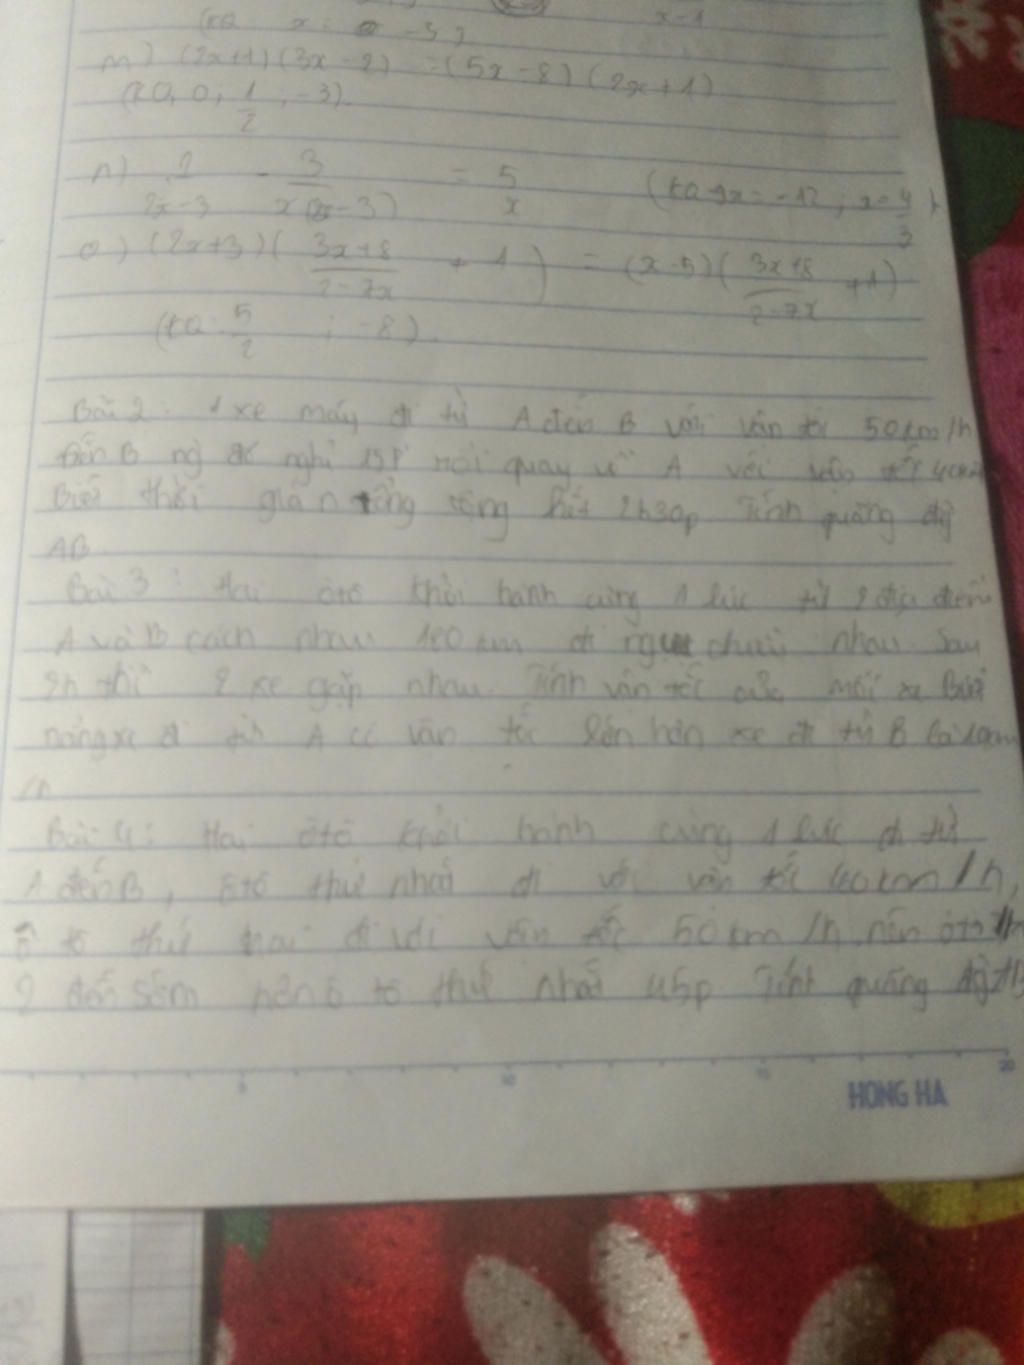 x=1
(KQ x: -3)
m) (2x+1)(3x-2) =(5x-8)(2x+1)
(KQ, 0, 1/2; -3).
n) 1/2x-3 - 3/x(2x-3) = 5/x (KQ x= -12; x=4/3)
o) (2x+3)(3x+8/2-7x + 1) = (x-5)(3x+8/2-7x +1)
(KQ 5/2; -8).
Bài 2: 1 xe máy đi từ A đến B với vận tốc 50km/h
Đến B ng nghỉ 15P rồi quay về A với vận tốc
Biết thời gian tổng cộng hết 2h30p Tính quãng đg
AB
Bài 3: Hai ôtô khởi hành cùng 1 lúc từ 2 địa điểm
A và B cách nhau đi ngược chiều nhau. Sau
2h thì 2 xe gặp nhau. Tính vận tốc của mỗi xe Biết
rằng xe đi từ A có vận tốc lớn hơn xe đi từ B là 10km
/h
Bài 4: Hai ôtô khởi hành cùng 1 lúc đi từ
A đến B, ôtô thứ nhất đi với vận tốc 40km/h,
ô tô thứ hai đi với vận tốc 50km/h. nên ôtô th
2 đến sớm hơn ô tô thứ nhất 45p Tính quãng đg AB
5 10 15 20
HONG HA